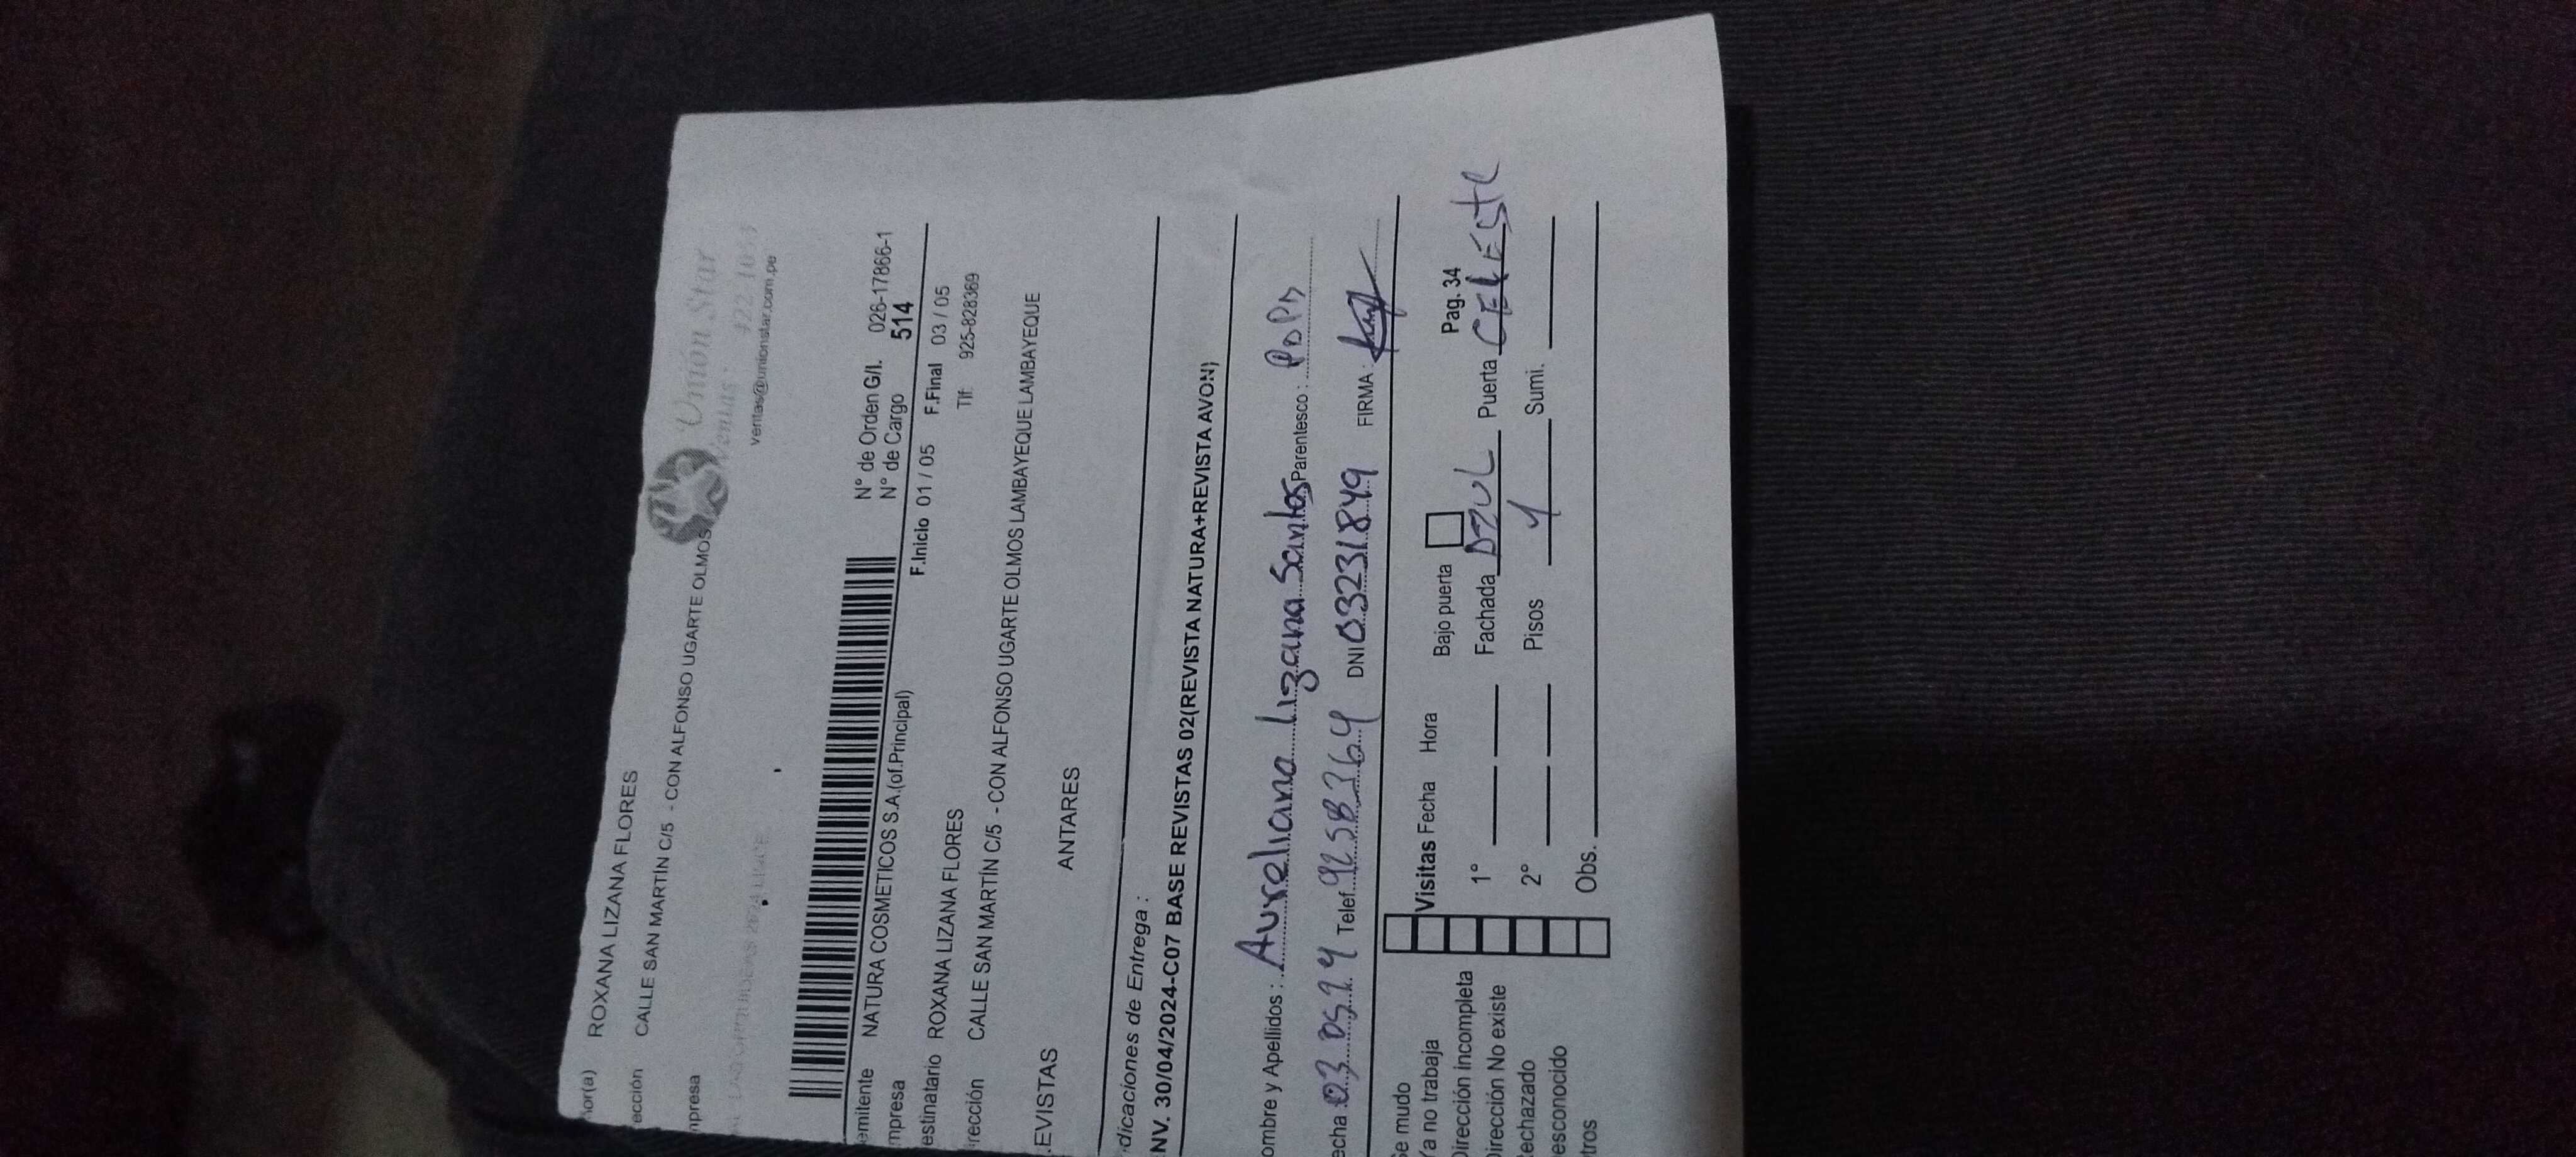 hor(a) ROXANA LIZANA FLORES
ección CALLE SAN MARTÍN C/5 - CON ALFONSO UGARTE OLMOS
npresa
Union Star
Ventas :
ventas@unionstar.com.pe
N° de Orden G/I. 026-17866-1
N° de Cargo 514
emitente NATURA COSMETICOS S.A.(of.Principal)
mpresa F.Inicio 01 / 05 F.Final 03 / 05
estinatario ROXANA LIZANA FLORES Tlf: 925-828369
irección CALLE SAN MARTÍN C/5 - CON ALFONSO UGARTE OLMOS LAMBAYEQUE LAMBAYEQUE
.EVISTAS ANTARES
dicaciones de Entrega :
NV. 30/04/2024-C07 BASE REVISTAS 02(REVISTA NATURA+REVISTA AVON)
ombre y Apellidos : Aureliana Lizana Santos Parentesco :
echa 03 05 24 Telef. DNI 03231849 FIRMA :
Se mudo
Ya no trabaja Visitas Fecha Hora Bajo puerta Pag. 34
Dirección incompleta 1° Fachada AZUL Puerta CELESTE
Dirección No existe
echazado 2° Pisos 1 Sumi.
esconocido
tros Obs.